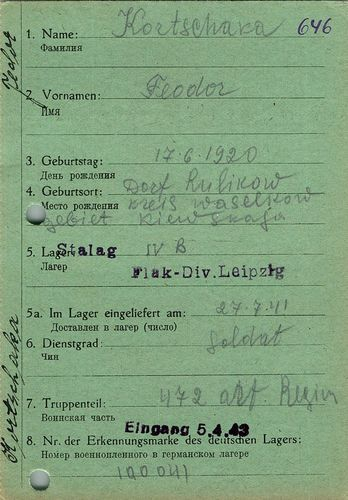 1. Name: Kortschaka 646
Фамилия
Feodor
2. Vornamen: Feodor
Имя
3. Geburtstag: 17.6.1920
День рождения
4. Geburtsort: Dorf Rulikow
Место рождения Kreis Waselkow
gebiet Kiewskaja
5. Lager: Stalag IV B
Лагер
Flak-Div. Leipzig
5a. Im Lager eingeliefert am: 27.7.41
Доставлен в лагер (число)
6. Dienstgrad: Soldat
Чин
Kortschaka
7. Truppenteil: 472 art. Regim
Воинская часть
Eingang 5.4.43
8. Nr. der Erkennungsmarke des deutschen Lagers:
Номер военнопленного в германском лагере
190041